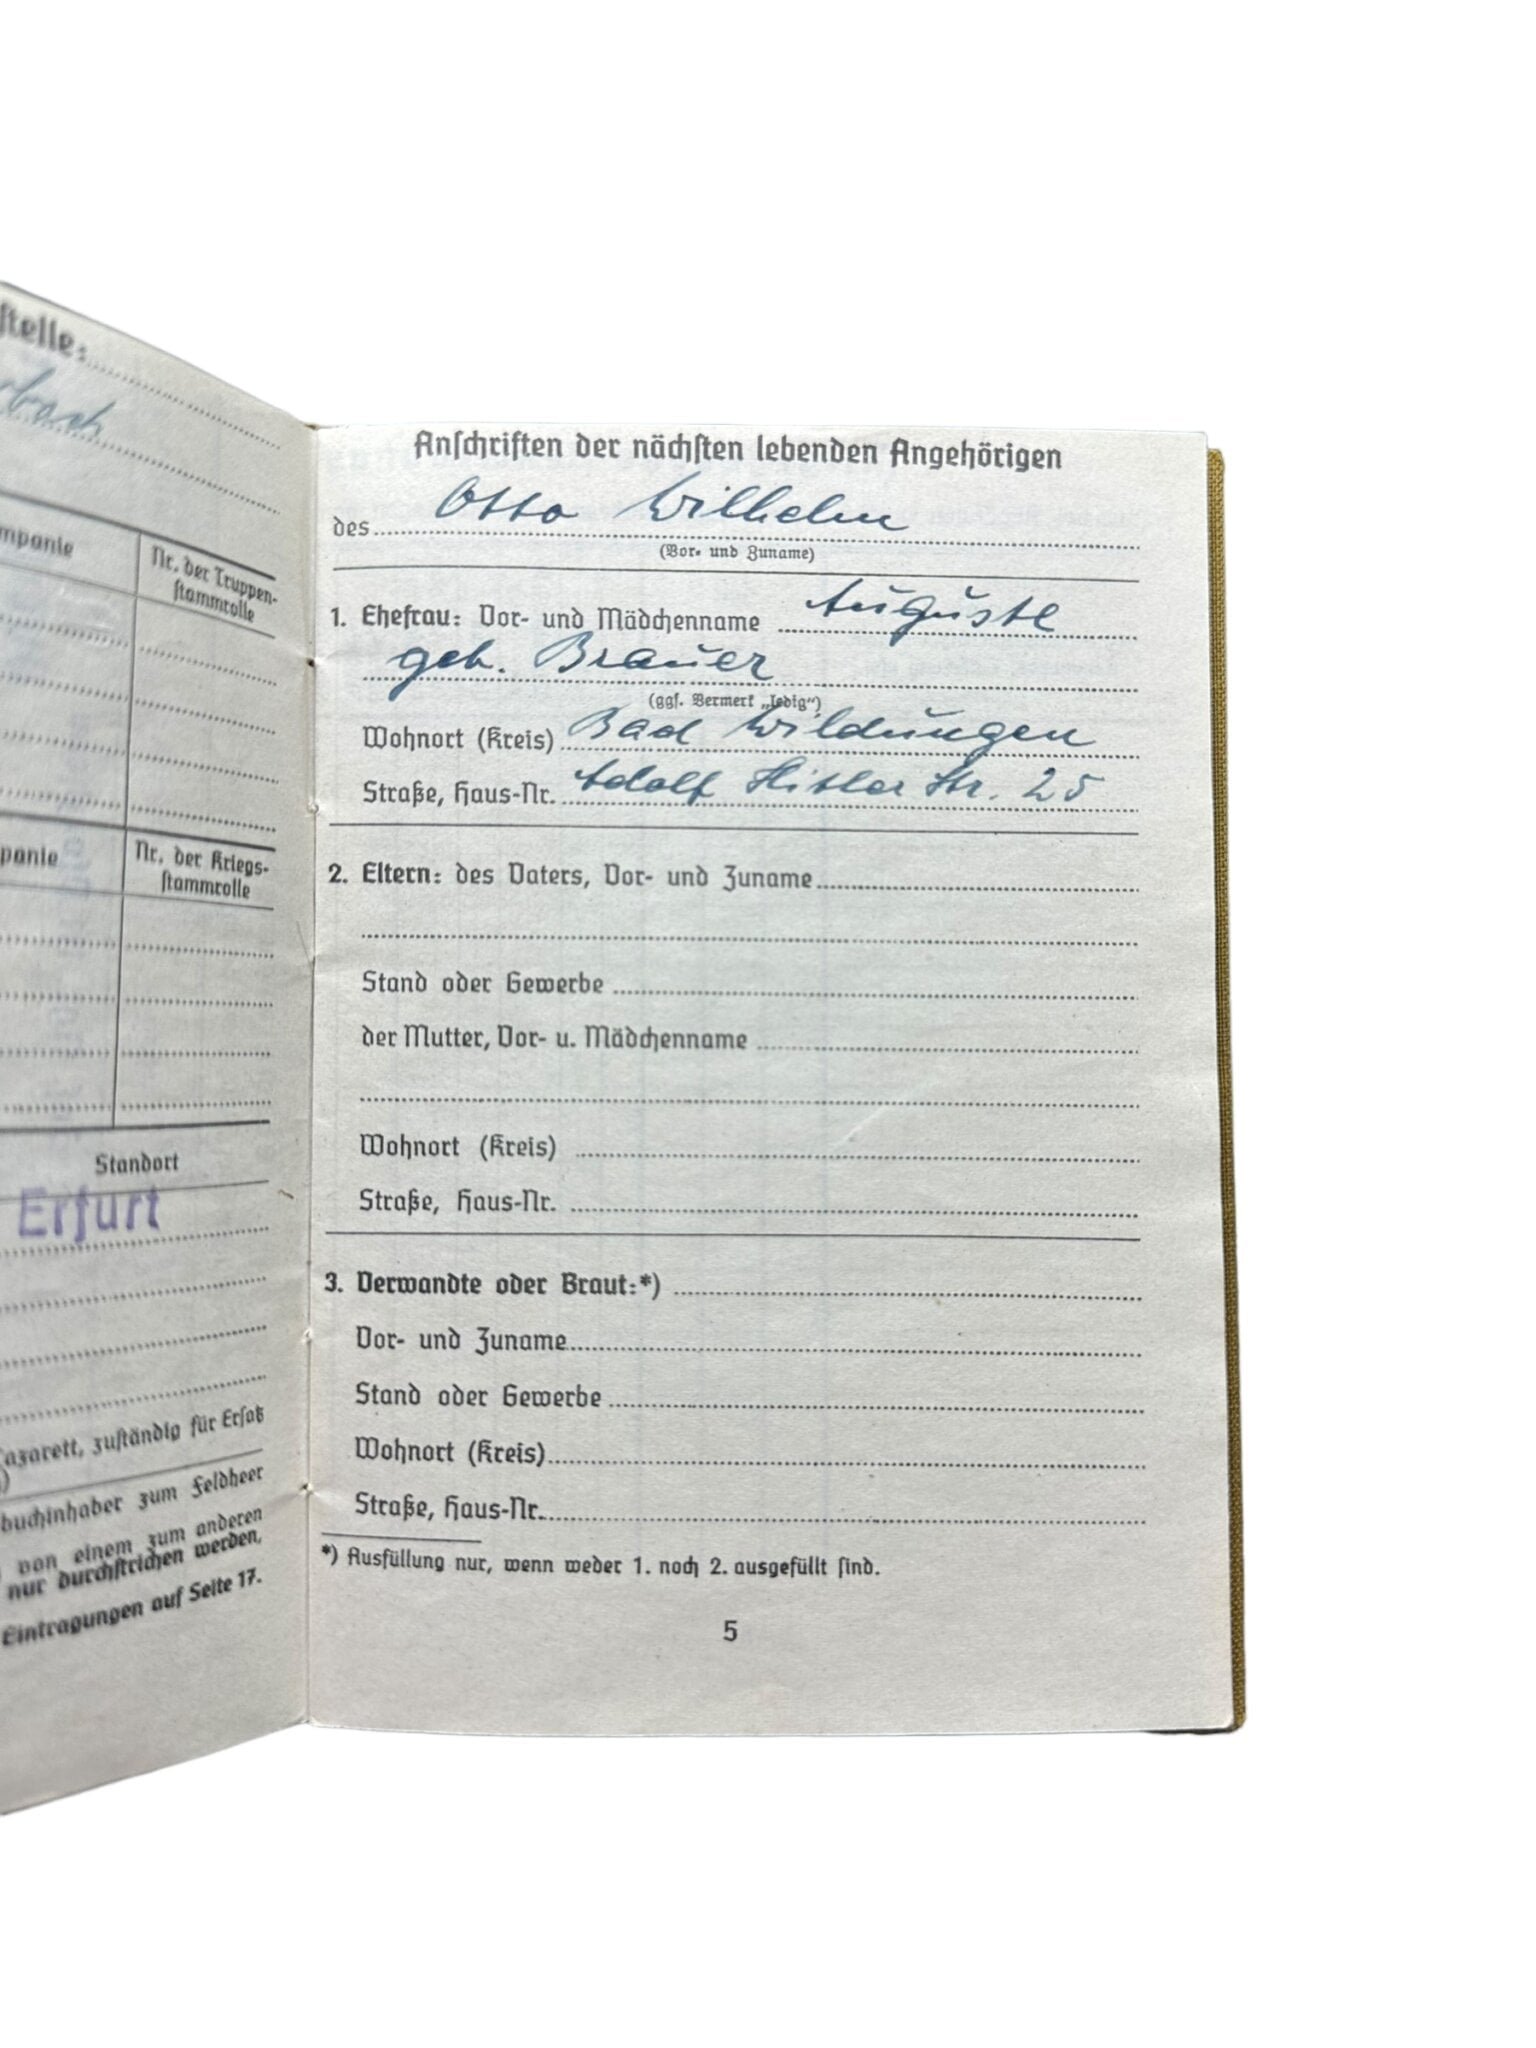 stelle:
rbach
mpanie
Nr. der Truppen-
stammrolle
panie
Nr. der Kriegs-
stammrolle
Standort
Erfurt
azarett, zuständig für Ersatz
)
buchinhaber zum Feldheer
von einem zum anderen
nur durchstrichen werden,
Eintragungen auf Seite 17.
Anschriften der nächsten lebenden Angehörigen
des Otto Wilhelm
(Vor- und Zuname)
1. Ehefrau: Vor- und Mädchenname Auguste
geb. Brauer
(ggf. Vermerk „ledig“)
Wohnort (Kreis) Bad Wildungen
Straße, Haus-Nr. Adolf Hitler Str. 25
2. Eltern: des Vaters, Vor- und Zuname
Stand oder Gewerbe
der Mutter, Vor- u. Mädchenname
Wohnort (Kreis)
Straße, Haus-Nr.
3. Verwandte oder Braut:*)
Vor- und Zuname
Stand oder Gewerbe
Wohnort (Kreis)
Straße, Haus-Nr.
*) Ausfüllung nur, wenn weder 1. noch 2. ausgefüllt sind.
5